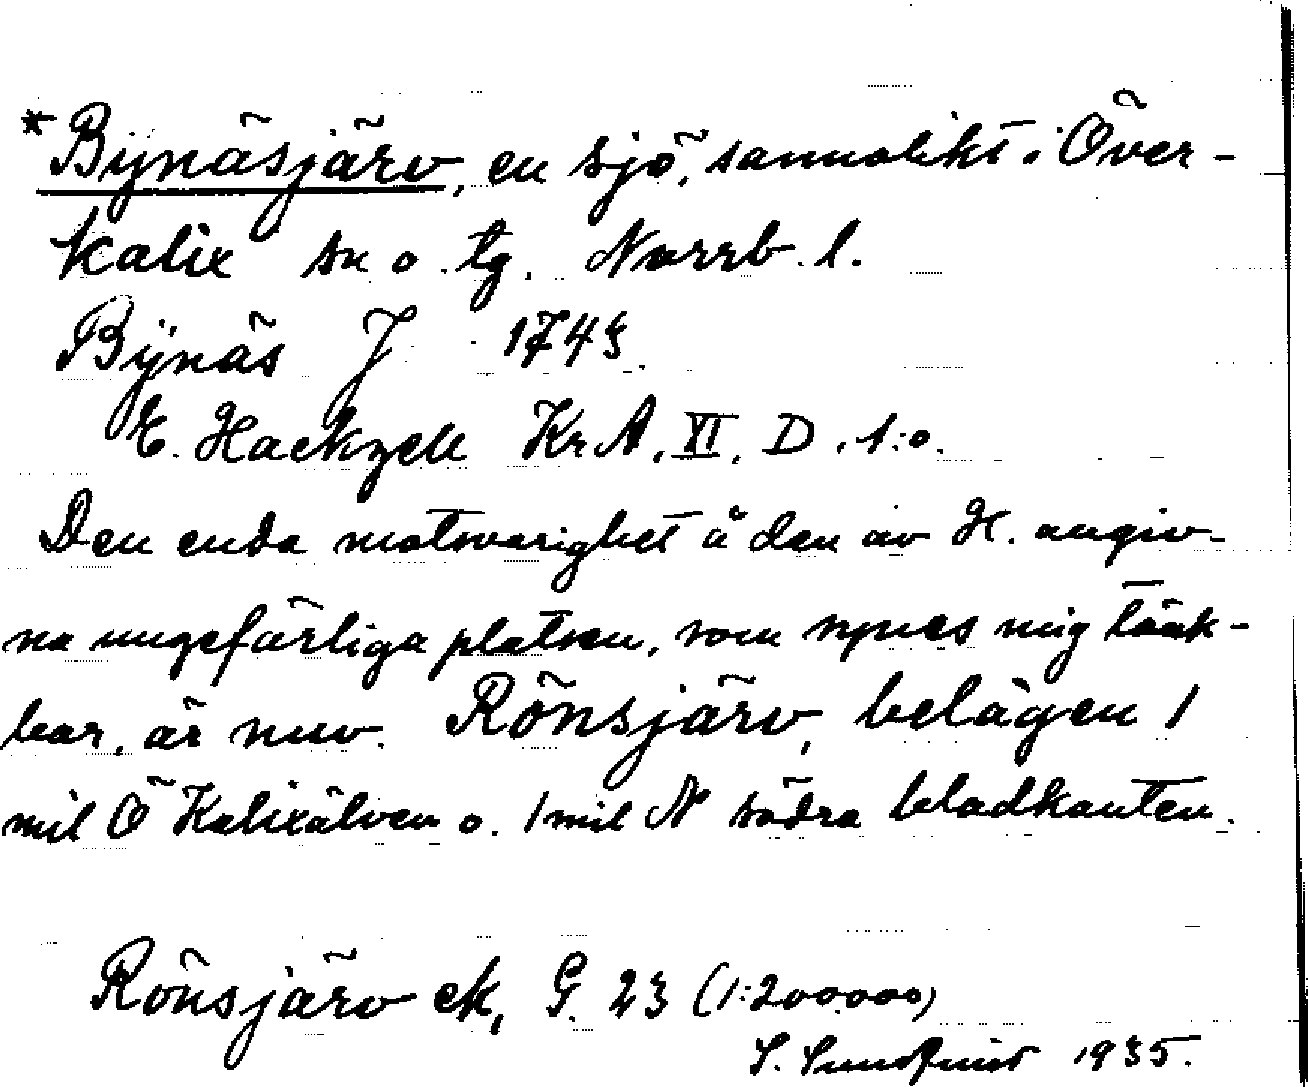 *Bÿnäsjärv, en sjö, sannolikt i Över-
kalix sn o. tg. Norrb. l.
Bÿnäs J 1743
E. Hackzell Kr A. XI. D. 1:o.
Den enda motsvarighet å den av H. angiv-
na ungefärliga platsen, som synes mig tänk-
bar, är nuv. Rönsjärv, belägen 1
mil Ö Kalixälven o. 1 mil N södra bladkanten.
Rönsjärv ek, G. 23 (1:200000)
S. Sundquist 1935.